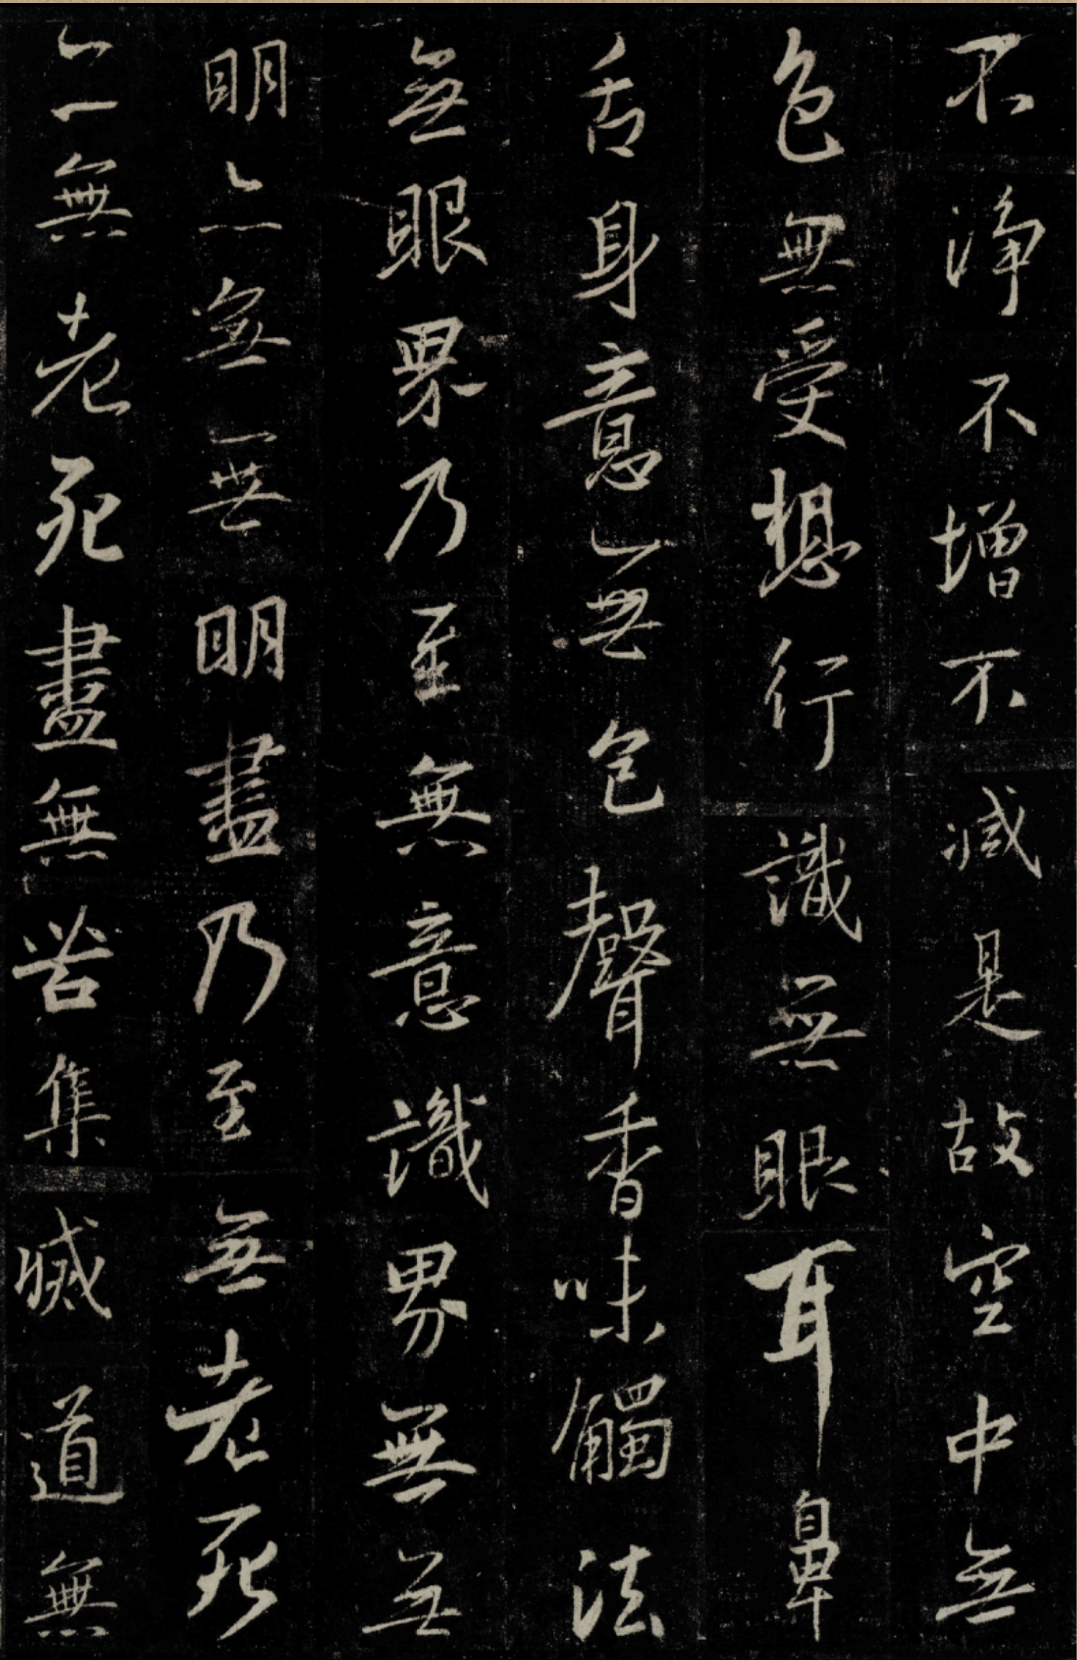 不淨不增不減是故空中無
色無受想行識無眼耳鼻
舌身意無色聲香味觸法
無眼界乃至無意識界無無
明亦無無明盡乃至無老死
亦無老死盡無苦集滅道無